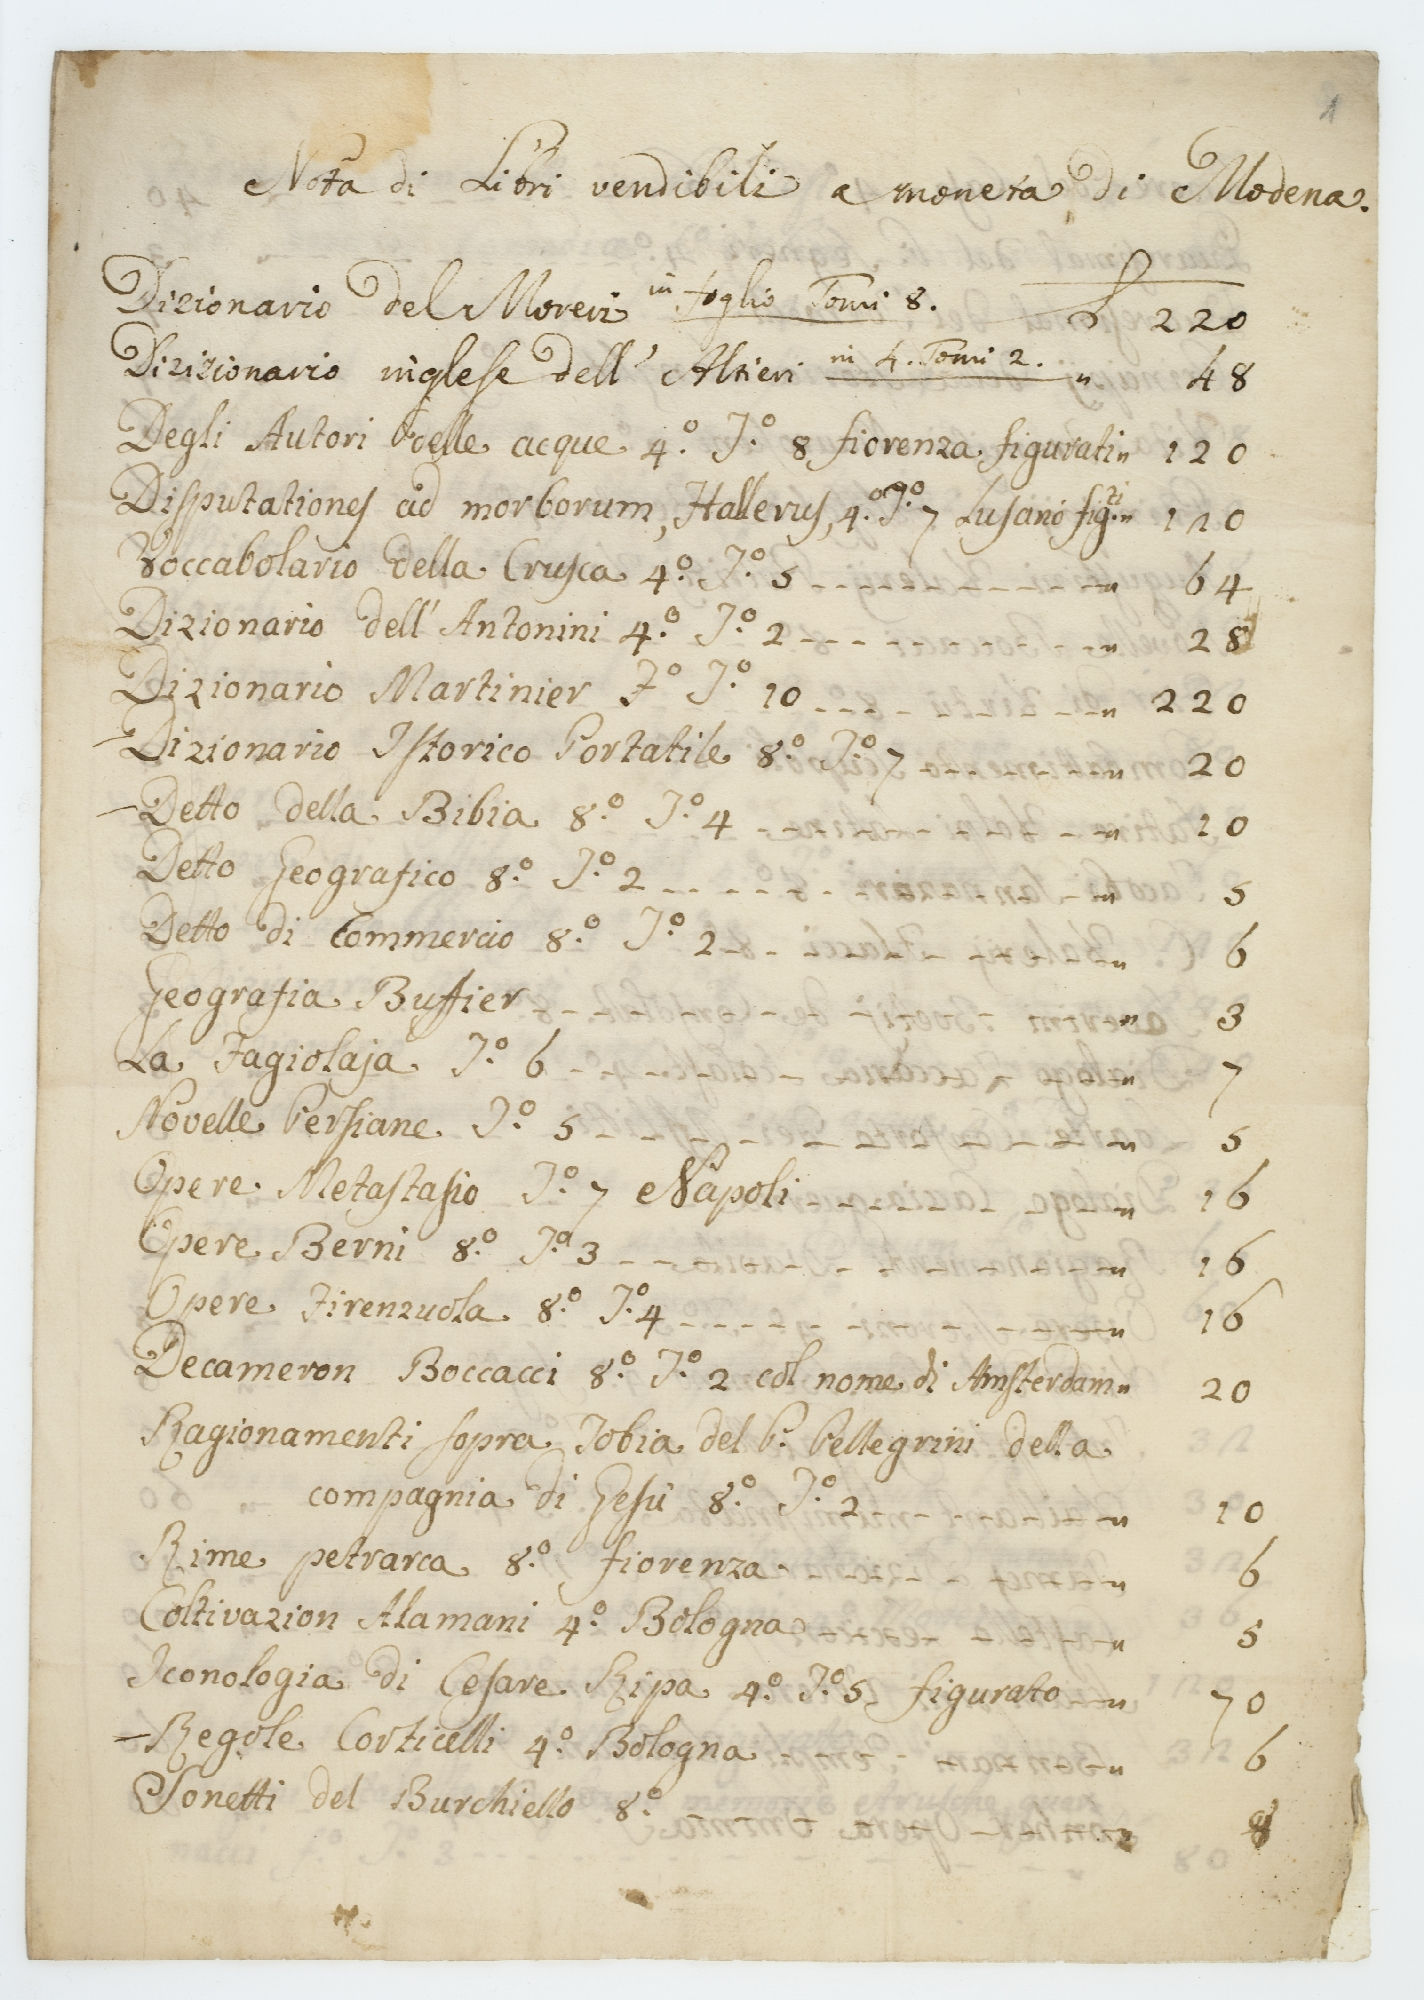 1
Nota di Libri vendibili a moneta di Modena.
Dizionario del Moreri in foglio Tomi 8. £ 220
Dizizionario inglese dell' Altieri in 4. Tomi 2. " 48
Degli Autori delle acque 4.º T.º 8 fiorenza figurati " 120
Disputationes ad morborum, Hallerus, 4.º T.º 7 Lusano fig.ti " 110
Voccabolario della Crusca 4.º T.º 5 " 64
Dizionario dell' Antonini 4.º T.º 2 " 28
Dizionario Martinier F.º T.º 10 " 220
– Dizionario Istorico Portatile 8.º T.º 7 " 20
– Detto della Bibia 8.º T.º 4 " 10
Detto Geografico 8.º T.º 2 " 5
Detto di Commercio 8.º T.º 2 " 6
Geografia Buffier " 3
La Fagiolaja T.º 6 " 7
Novelle Persiane T.º 5 " 5
Opere Metastasio T.º 7 Napoli " 16
Opere Berni 8.º T.º 3 " 16
Opere Firenzuola 8.º T.º 4 " 16
Decameron Boccacci 8.º T.º 2 col nome di Amsterdam " 20
Ragionamenti sopra Tobia del P. Pellegrini della
compagnia di Gesù 8.º T.º 2 " 10
Rime petrarca 8.º fiorenza " 6
Coltivazion Alamani 4.º Bologna " 5
Iconologia di Cesare Ripa 4.º T.º 5 figurato " 70
– Regole Corticelli 4.º Bologna " 6
Sonetti del Burchiello 8.º "